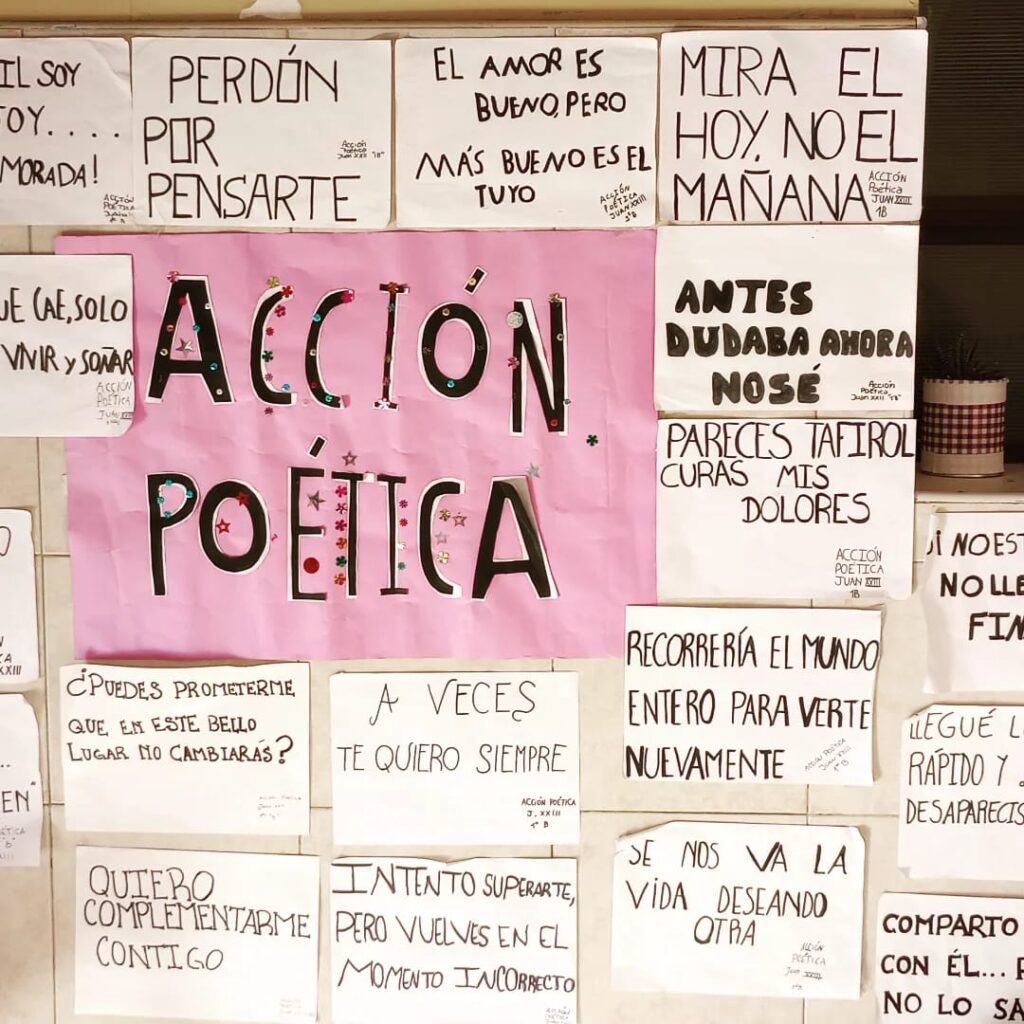 IL SOY
MORADA!
PERDÓN
POR
PENSARTE
Acción
Poética
Juan XXII "1B"
EL AMOR ES
BUENO, PERO
MÁS BUENO ES EL
TUYO
ACCIÓN
POÉTICA
JUAN XXIII
1°B
MIRA EL
HOY, NO EL
MAÑANA
ACCIÓN
Poética
JUAN XXIII
1B
UE CAE, SOLO
VIVIR y SOÑAR
ACCIÓN
POÉTICA
ACCIÓN
POÉTICA
ANTES
DUDABA AHORA
NO SÉ
Acción
Poética
Juan XXII "1B"
PARECES TAFIROL
CURAS MIS
DOLORES
ACCIÓN
POETICA
JUAN XXIII
1B
NO EST
NO LLE
FIN
¿PUEDES PROMETERME
QUE EN ESTE BELLO
LUGAR NO CAMBIARÁS?
A VECES
TE QUIERO SIEMPRE
ACCIÓN POÉTICA
J. XXIII
1° B
RECORRERÍA EL MUNDO
ENTERO PARA VERTE
NUEVAMENTE
ACCION POÉTICA
JUAN XXIII
1°B
LLEGUÉ
RÁPIDO Y
DESAPARECIS
QUIERO
COMPLEMENTARME
CONTIGO
INTENTO SUPERARTE,
PERO VUELVES EN EL
MOMENTO INCORRECTO
SE NOS VA LA
VIDA DESEANDO
OTRA
POÉTICA
COMPARTO
CON ÉL...
NO LO SA